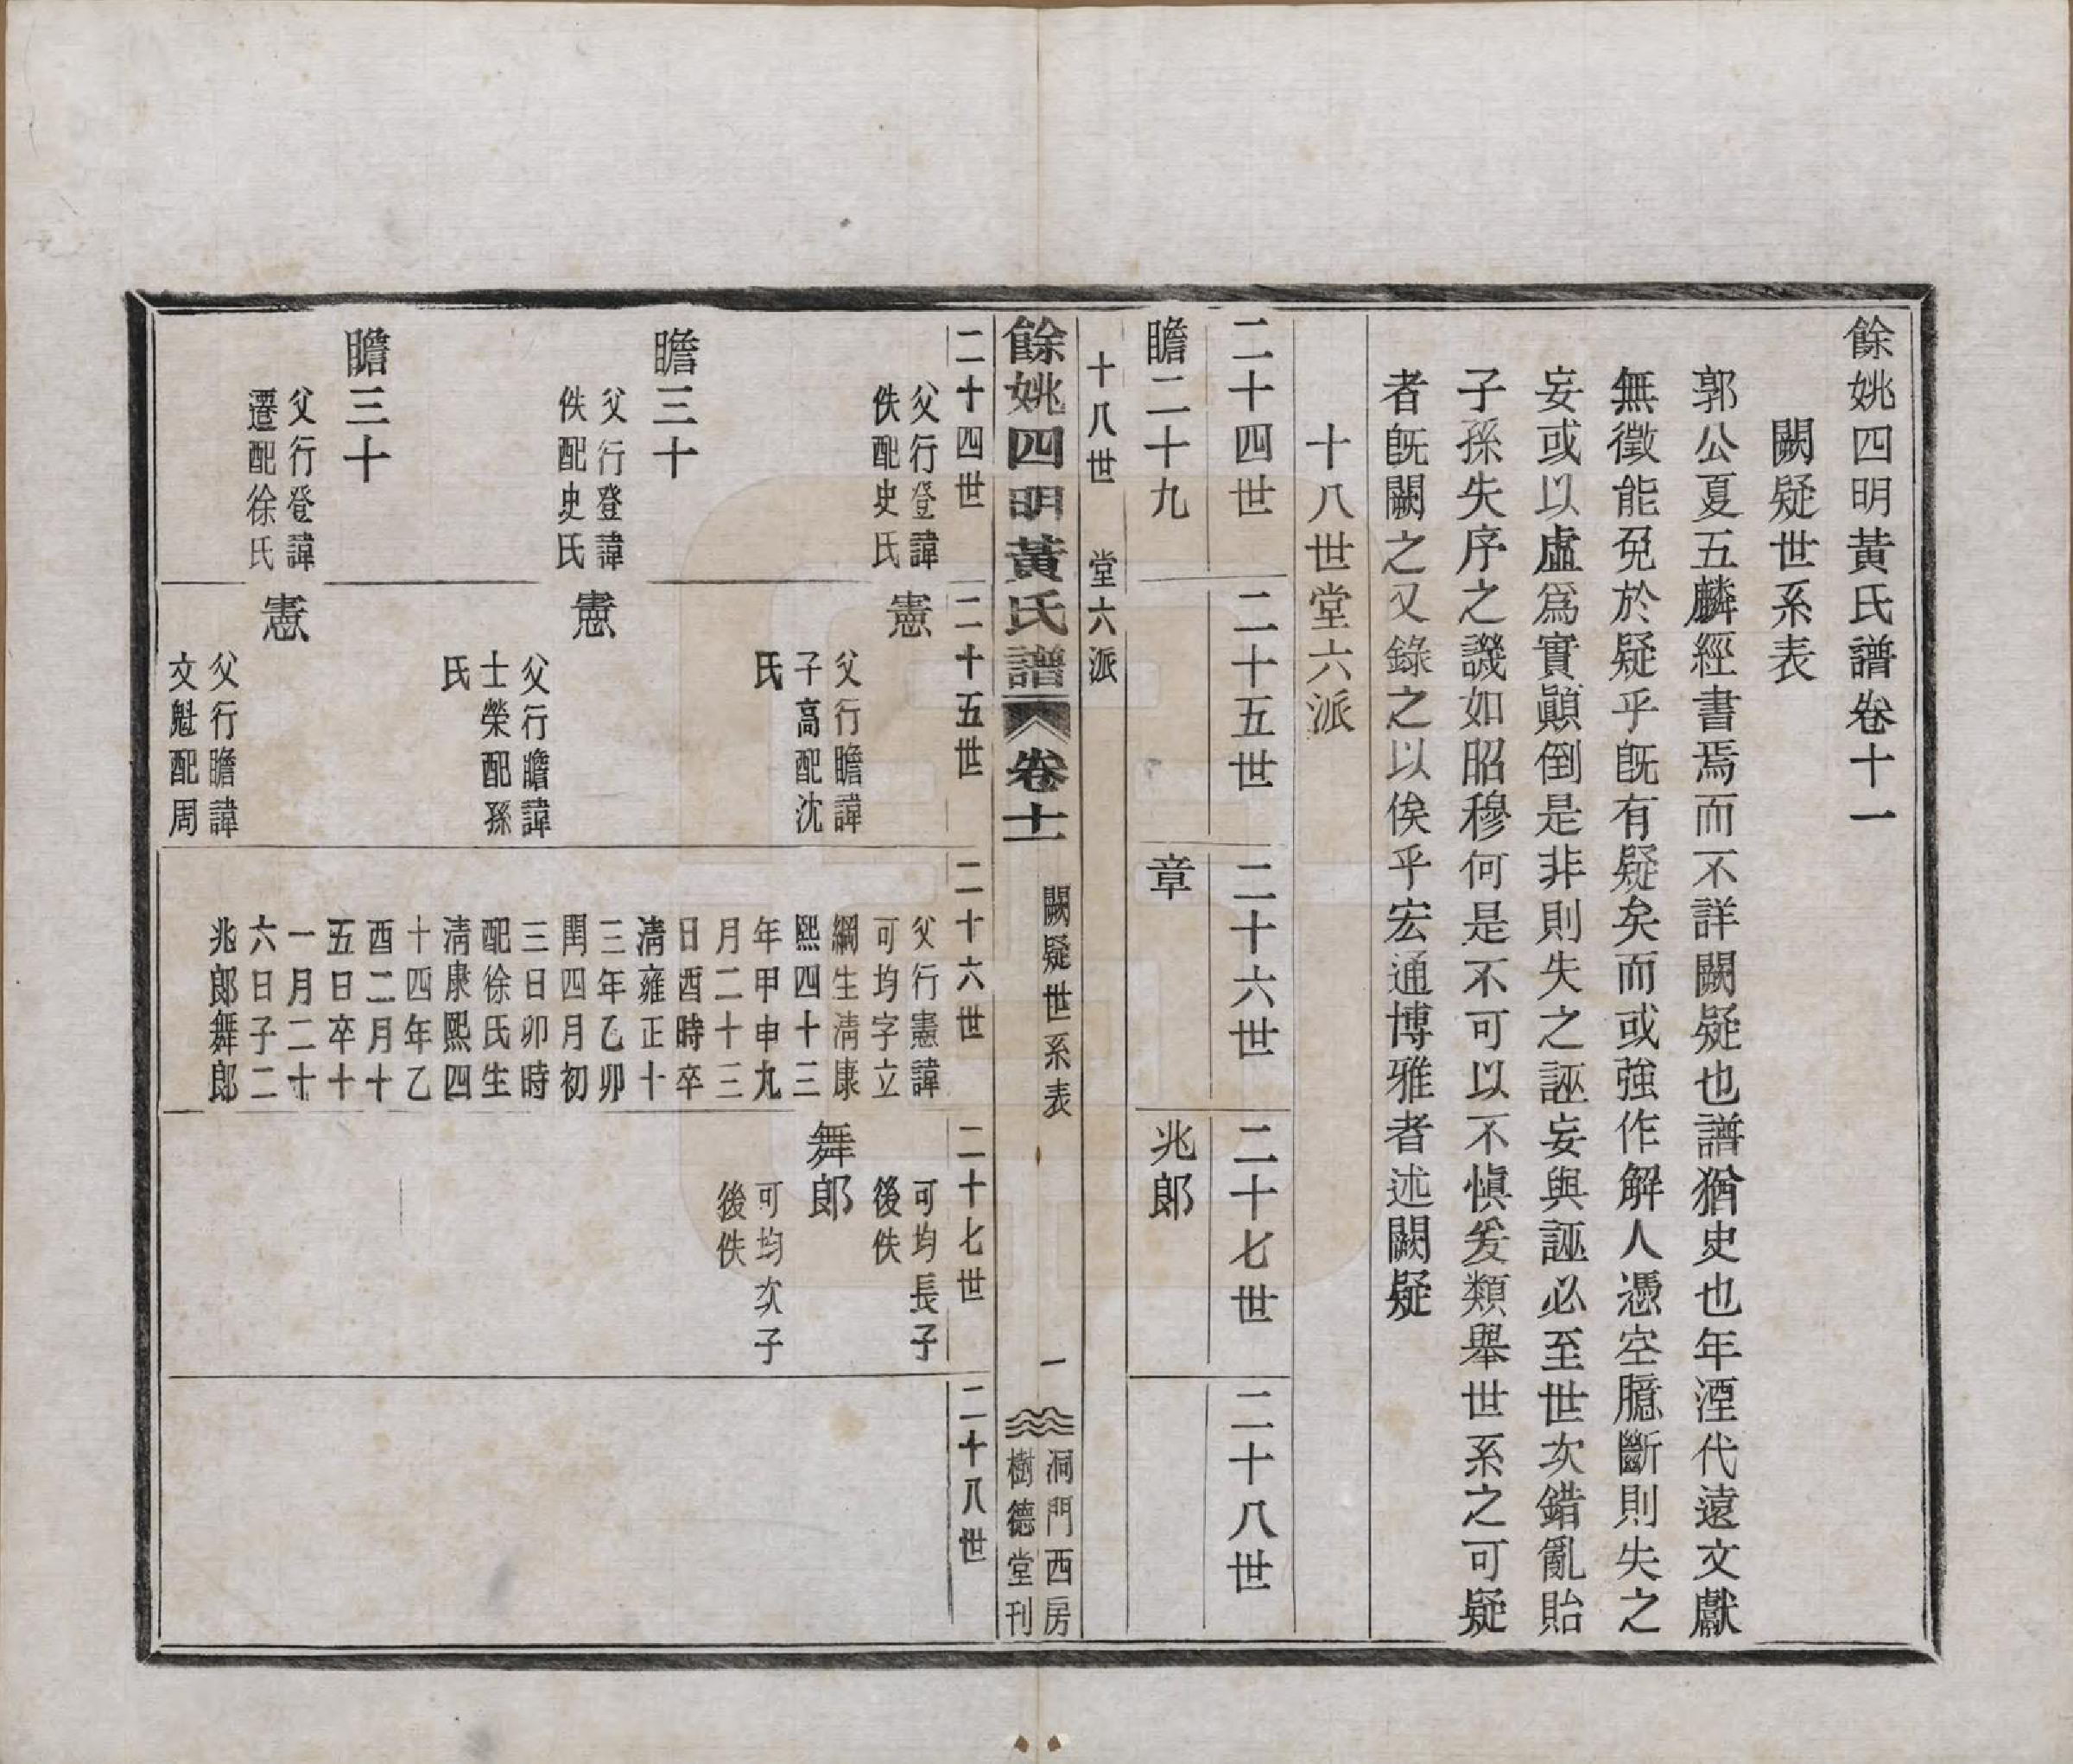 餘姚四明黃氏譜卷十一
闕疑世系表
郭公夏五麟經書焉而不詳闕疑也譜猶史也年湮代遠文獻
無徵能免於疑乎旣有疑矣而或強作解人憑空臆斷則失之
妄或以虛爲實顚倒是非則失之誣妄與誣必至世次錯亂貽
子孫失序之譏如昭穆何是不可以不愼爰類舉世系之可疑
者旣闕之又錄之以俟乎宏通博雅者述闕疑
十八世堂六派
二十四世
二十五世
二十六世
二十七世
二十八世
瞻二十九
章
兆郎
十八世　堂六派
餘姚四明黃氏譜
卷十一
闕疑世系表
一
洞門西房
樹德堂刊
二十四世
二十五世
二十六世
二十七世
二十八世
父行登諱
佚配史氏
瞻三十
父行登諱
佚配史氏
瞻三十
父行登諱
遷配徐氏
憲
父行瞻諱
子高配沈
氏
憲
父行瞻諱
士榮配孫
氏
憲
父行瞻諱
文魁配周
父行憲諱
可均字立
綱生淸康
熙四十三
年甲申九
月二十三
日酉時卒
淸雍正十
三年乙卯
閏四月初
三日卯時
配徐氏生
淸康熙四
十四年乙
酉二月十
五日卒十
一月二十
六日子二
兆郎舞郎
可均長子
後佚
舞郎
可均次子
後佚